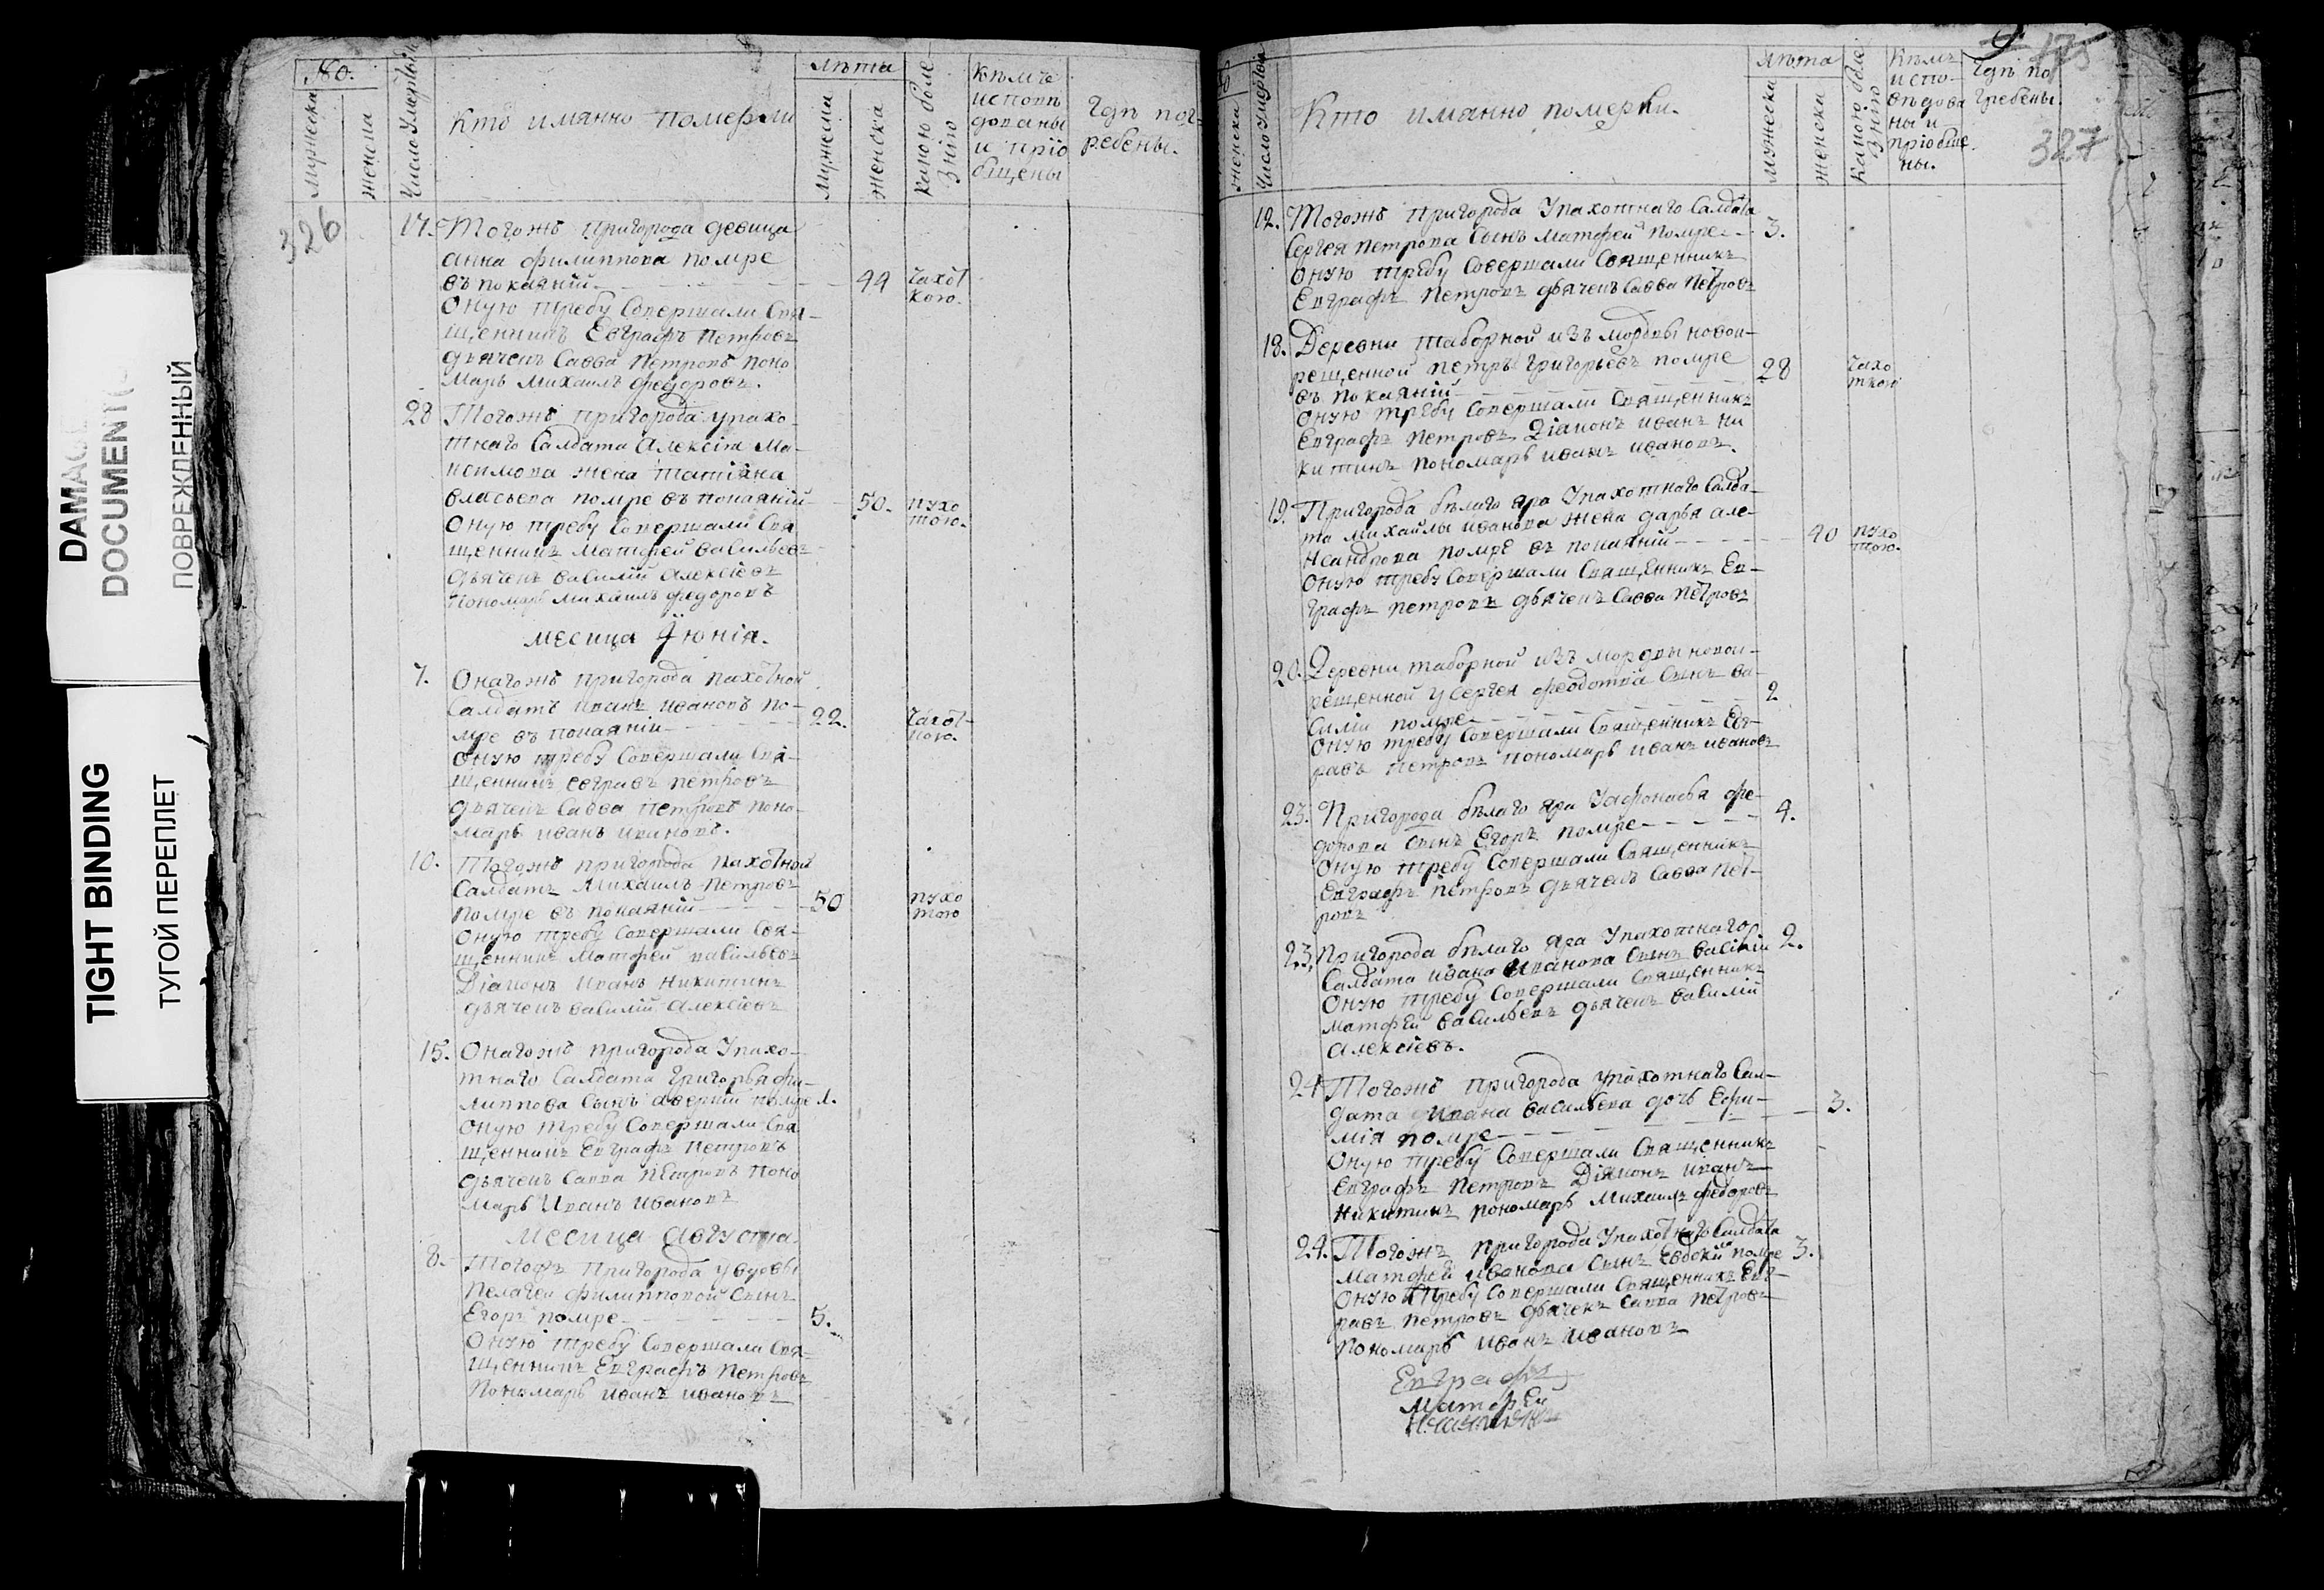 DAMAGED
DOCUMENT(S)
ПОВРЕЖДЕННЫЙ
TIGHT BINDING
ТУГОЙ ПЕРЕПЛЕТ
№.
мужеска
женска
Число умертвїи
Кто имянно померли
лѣта
мужески
женска
какою боле
знїю
Кѣмъ
исповѣ
дованы
и прїо
бщены
Гдѣ пог-
ребены.
326
17. Тогожъ пригорода девица
анна филиппова помре
въ покаянїй 44 чахот
кою.
Оную требу совершали Свя-
щенникъ Евграфъ Петровъ
дьячекъ Савва Петровъ поно
марь Михаилъ Федоровъ.
28 Тогожъ пригорода упахо
тнаго Салдата Алексїя Ма-
ксимова жена Татїяна
власьева помре въ покаянїй 50. пухо
тою.
Оную требу Совершали Свя
щенникъ Матфей васильевъ
дьячекъ василїй Алексїевъ
пономарь михаилъ федоровъ
месица Їюнїя.
7. Онагожъ пригорода пахотной
Салдатъ иванъ ивановъ по-
мре въ покаянїи 22. чахот-
кою.
Оную требу Совершали Свя-
щенникъ евгравъ петровъ
дьячекъ Савва петровъ поно-
марь иванъ ивановъ.
10. Тогожъ пригорода пахотной
Салдатъ михаилъ Петровъ
помре въ покаянїй 50 пухо
тою
Оную требу Совершали Свя-
щенникъ Матфей васильевъ
Дїаконъ иванъ никитинъ
дьячекъ василїй Алексїевъ
15. Онагожъ пригорода Упахо-
тнаго Салдата григорья фи-
липпова Сынъ аверкїй помре 1.
Оную требу Совершали Свя
щенникъ Евграфъ Петровъ
дьячекъ Савва Петровъ поно
марь Иванъ ивановъ
месица Августа
8. Тогожъ Пригорода у вдовы
Пелагеи филипповой Сынъ
Егоръ помре 5.
Оную требу Совершали Свя-
щенникъ Евграфъ Петровъ
Пономарь иванъ ивановъ
175
327
женска
Число умертвїи
Кто имянно померли.
лѣта
мужеска
женска
Какою боле
знїю
Кѣмъ
испо-
вѣдова
ны и
прїобще
ны.
Гдѣ по
гребены.
12. Тогожъ пригорода Упахотнаго Салдата
Сергея петрова Сынъ Матфей помре 3.
Оную требу Совершали Священникъ
Евграфъ Петровъ дьячекъ Савва Петровъ
18. Деревни таборной изъ мордвы новок-
рещенной петръ григорьевъ помре
въ покаянїй 28 чахо
ткою
Оную требу Совершали Священникъ
Евграфъ Петровъ Дїаконъ иванъ ни
китинъ пономарь иванъ ивановъ.
19. Пригорода бѣлаго яра Упахотнаго Салда-
та михайлы иванова жена дарья але-
ксандрова помре въ покаянїй 40 пухо
тою.
Оную требу Совершали Священникъ Ев-
графъ петровъ дьячекъ Савва Петровъ
20. Деревни таборной изъ мордвы новок-
рещенной у Сергея феодотова Сынъ ва-
силїи помре 2
Оную требу Совершали Священникъ Евг-
равъ Петровъ пономарь иванъ ивановъ
23. Пригорода бѣлаго яра Уафонасья фе-
дорова Сынъ Егоръ помре 4.
Оную требу Совершали Священникъ
Евграфъ Петровъ дьячекъ Савва Пет-
ровъ
23. Пригорода бѣлаго яра Упахотнаго 2.
Салдата ивана иванова Сынъ василїи
Оную требу Совершали Священникъ
матфей васильевъ дьячекъ василїй
Алексїевъ.
24 Тогожъ пригорода упахотнаго Сал-
дата ивана васильева дочь Ефи-
мїя помре 3.
Оную требу Совершали Священникъ
Евграфъ Петровъ Дїяконъ иванъ
никитинъ пономарь михаилъ федоровъ
24. Тогожъ пригорода Упахотнаго Салдата
матфея иванова Сынъ Евдоким помре 3.
Оную требу Совершали Священникъ Евг-
равъ Петровъ дьячекъ Савва Петровъ
Пономарь иванъ ивановъ
Евграфъ
Матфей